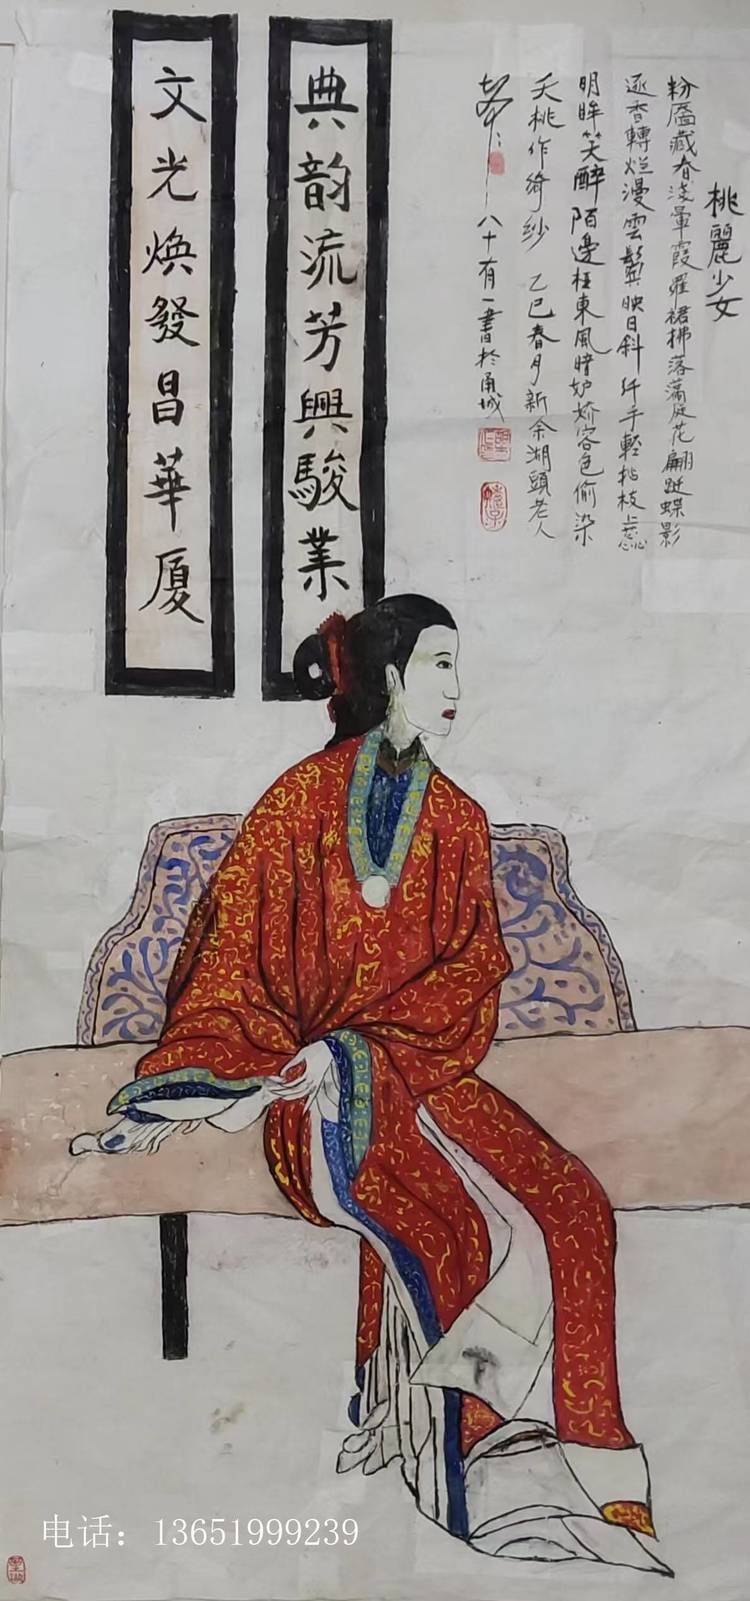 桃麗少女
粉靨藏春淺暈霞羅裙拂落滿庭花翩跹蝶影
逐香轉烂漫雲鬓映日斜纤手輕拈枝上蕊
明眸笑醉陌邊枉東風暗妒嬌容色偷染
夭桃作绮纱 乙巳春月新余湖頭老人
八十有一書於甬城
典韵流芳興駿業
文光焕發昌華厦
电话：13651999239